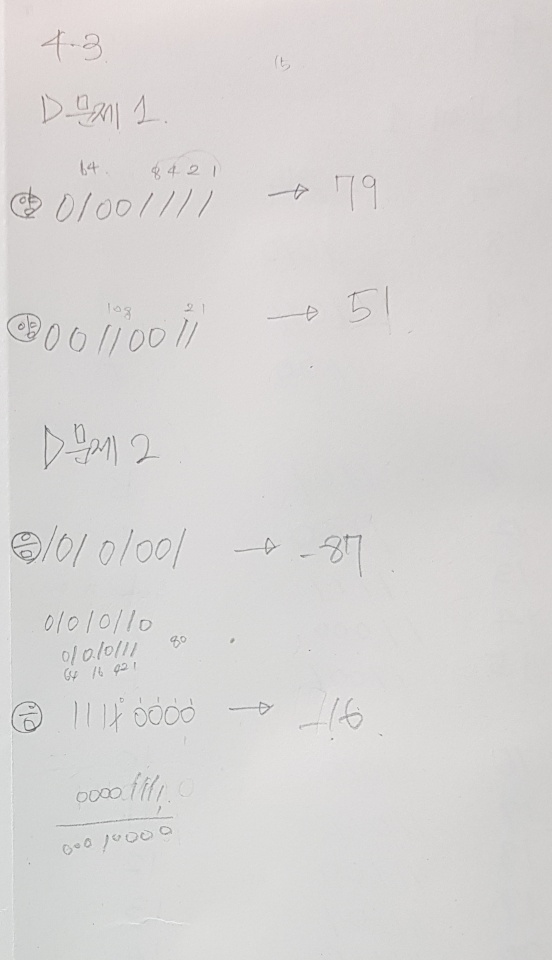 4-3
15
▷문제 1.
64 8 4 2 1
양 01001111 → 79
2 1
양 00110011 → 51
▷문제 2
음 10101001 → -87
01010110
01010111 80
64 16 421
음 11110000 → -16
00001111
00010000